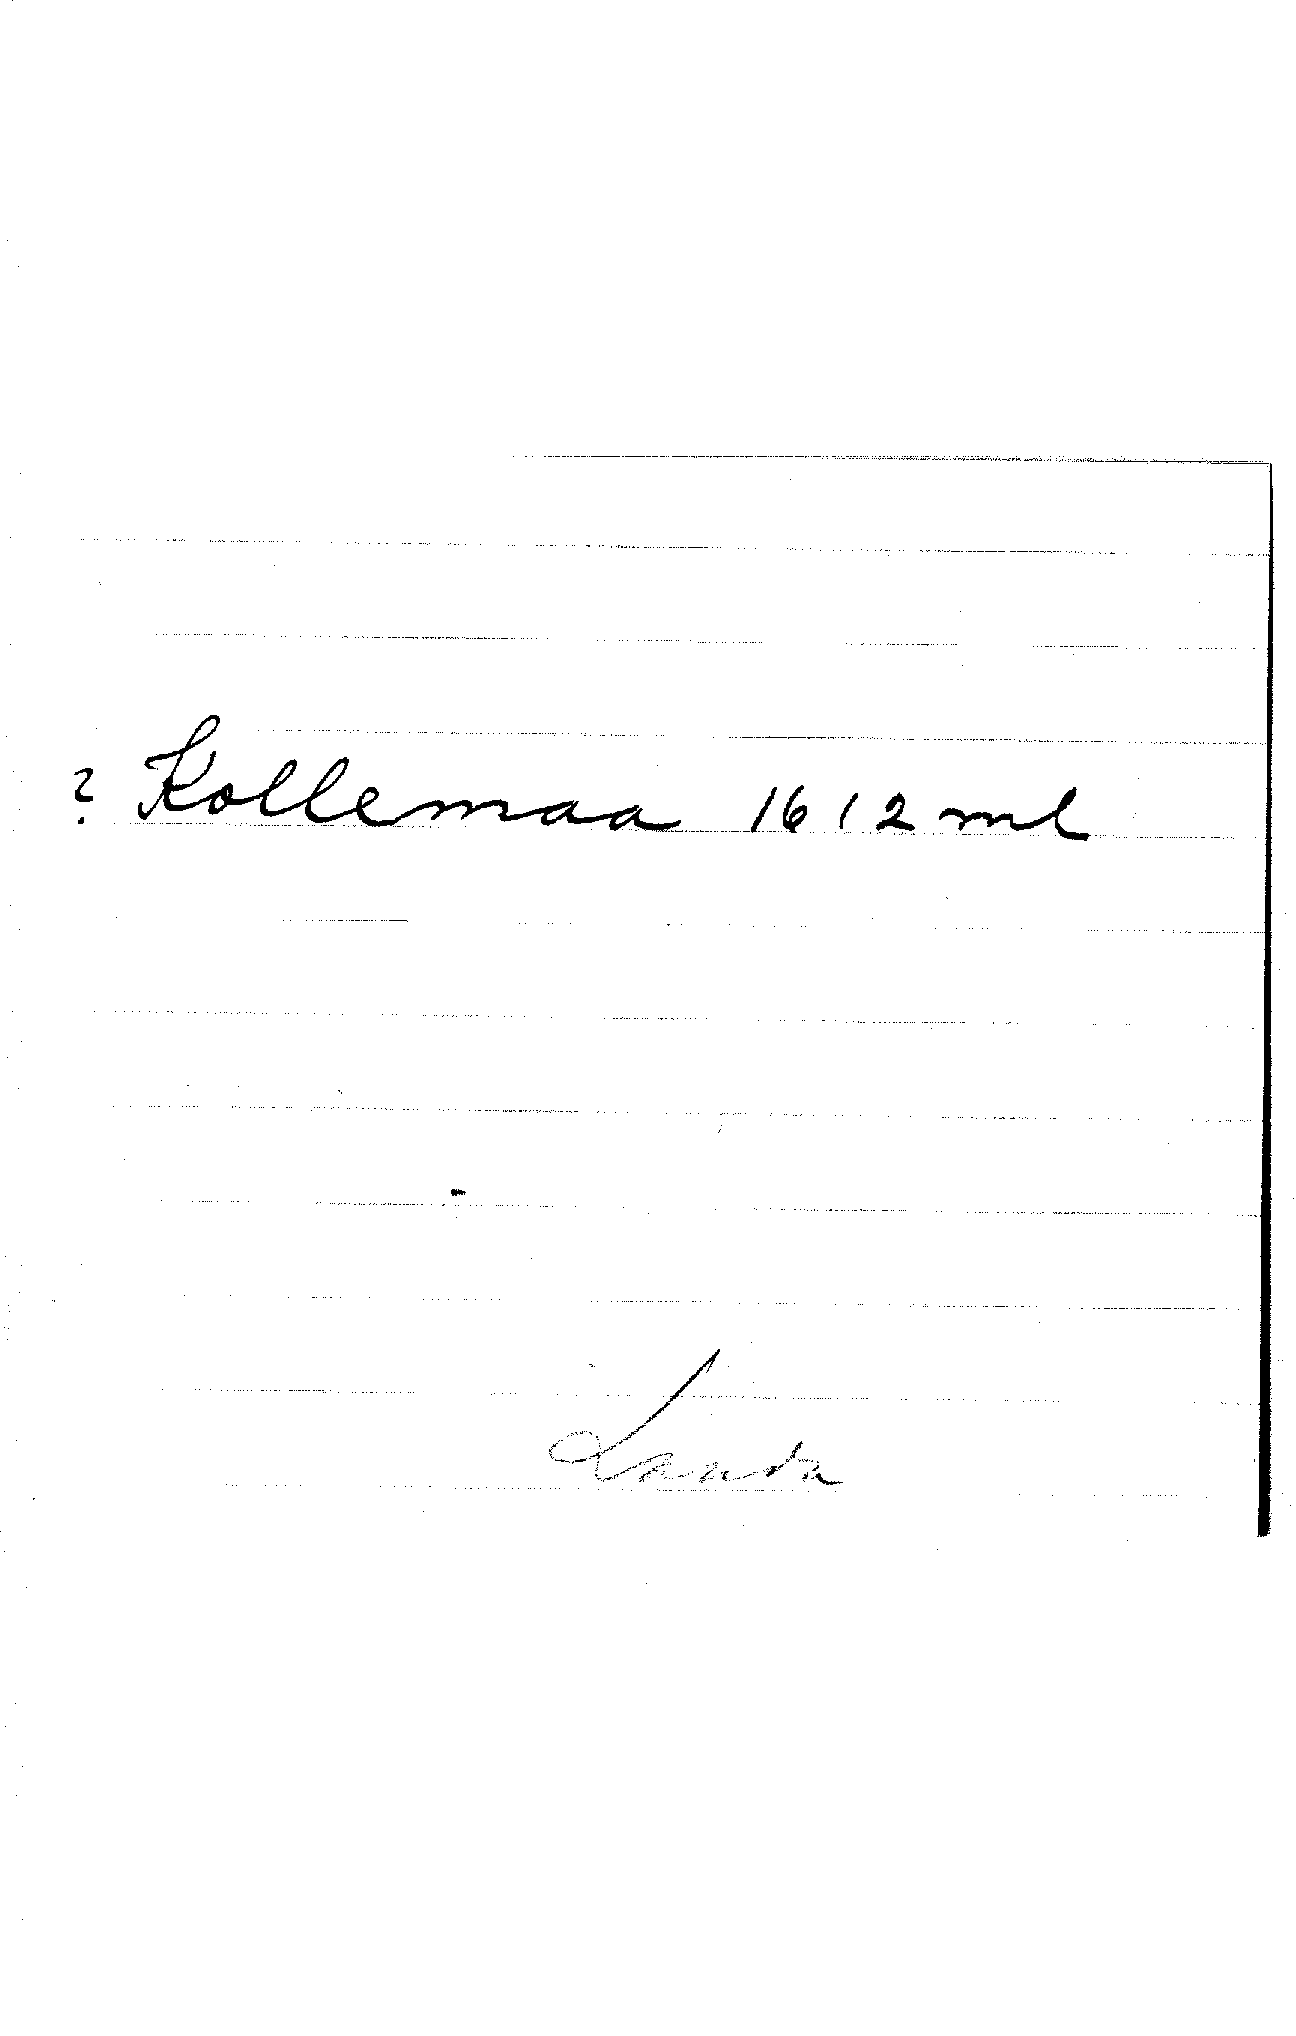 ? Kollemaa 1612 ml
Landa